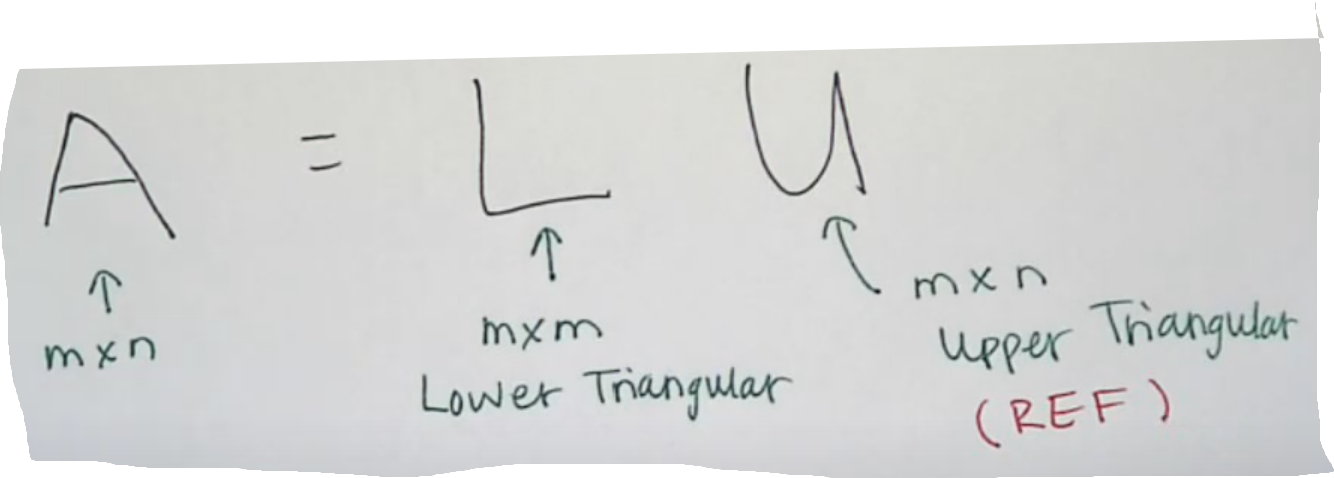 A = L U
m x n
m x m
Lower Triangular
m x n
Upper Triangular
(REF)